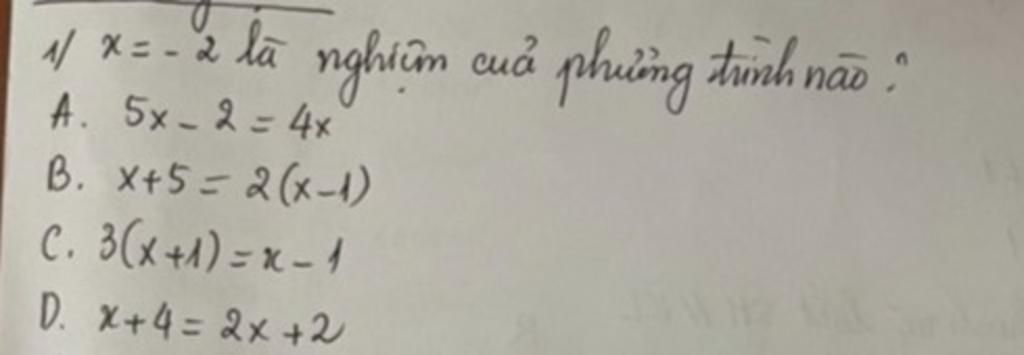 1/ x = - 2 là nghiệm cuả phương trình nào ?
A. 5x - 2 = 4x
B. x+5 = 2(x-1)
C. 3(x+1) = x - 1
D. x+4 = 2x +2